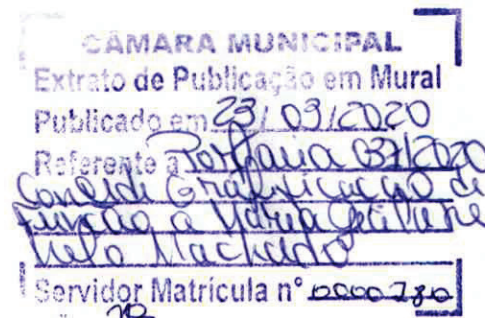 CÂMARA MUNICIPAL
Extrato de Publicação em Mural
Publicado em 23/03/2020
Referente a Portaria 037/2020
Concede Gratificação de
Função a Maria
Melo Machado
Servidor Matrícula n° 0000780